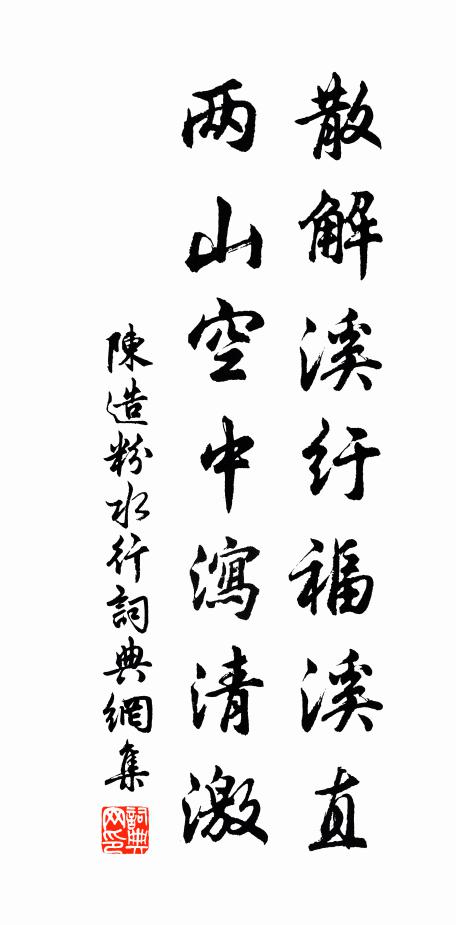 散解溪纡福溪直
两山空中瀉清激
陳造粉水行詞典網集
詞典网印